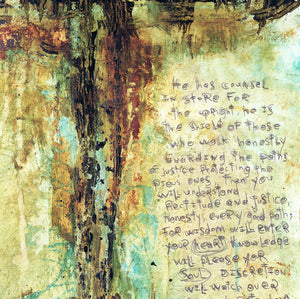 He has counsel
in store for
the upright, he is
the shield of those
who walk honestly
Guarding the paths
of justice protecting the
pious ones. Then you
will understand
Rectitude and justice,
honesty, every good path;
For wisdom will enter
your heart, knowledge
will please your
soul Discretion
will watch over